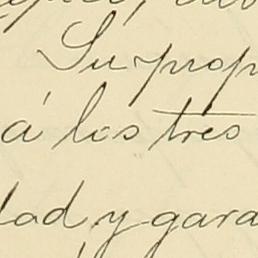 Su prop
á los tres
dad y gara